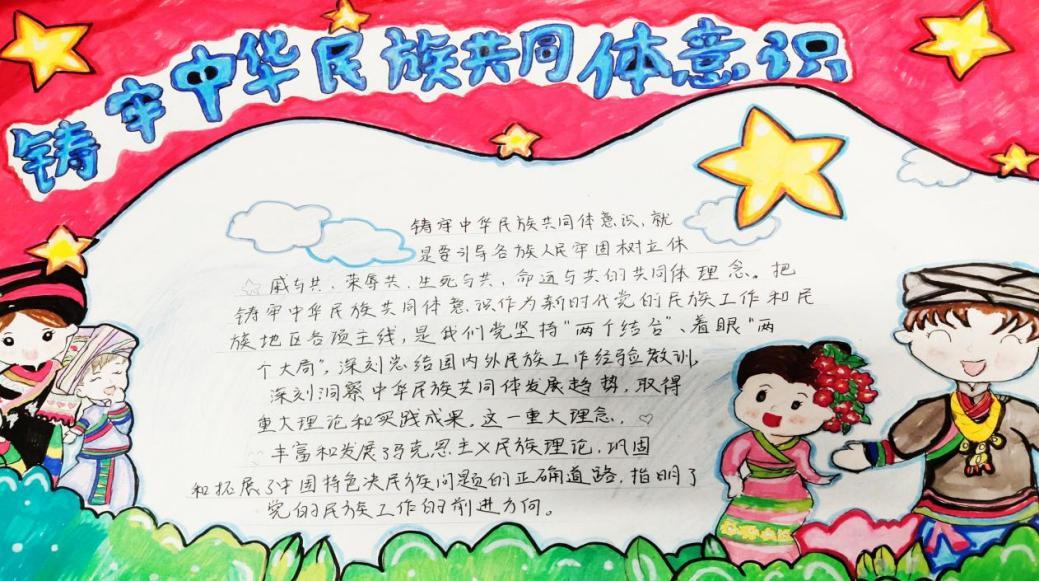 铸牢中华民族共同体意识
铸牢中华民族共同体意识，就
是要引导各族人民牢固树立休
戚与共、荣辱共、生死与共、命运与共的共同体理念。把
铸牢中华民族共同体意识作为新时代党的民族工作和民
族地区各项主线，是我们党坚持“两个结合”、着眼“两
个大局”，深刻总结国内外民族工作经验教训，
深刻洞察中华民族共同体发展趋势，取得
重大理论和实践成果。这一重大理念，
丰富和发展了马克思主义民族理论，巩固
和拓展了中国特色决民族问题的正确道路，指明了
党的民族工作的前进方向。